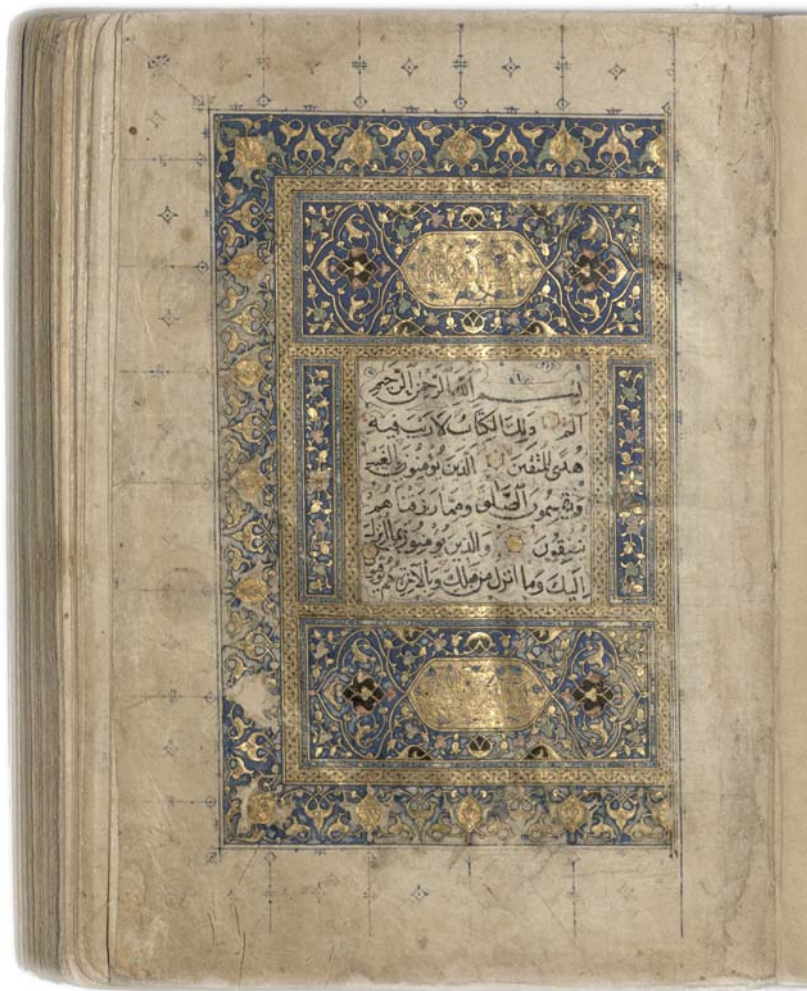 بسم الله الرحمن الرحيم
الم ذلك الكتاب لا ريب فيه
هدى للمتقين الذين يؤمنون بالغيب
ويقيمون الصلوة ومما رزقناهم
ينفقون والذين يؤمنون بما أنزل
إليك وما أنزل من قبلك وبالآخرة هم يوقنون